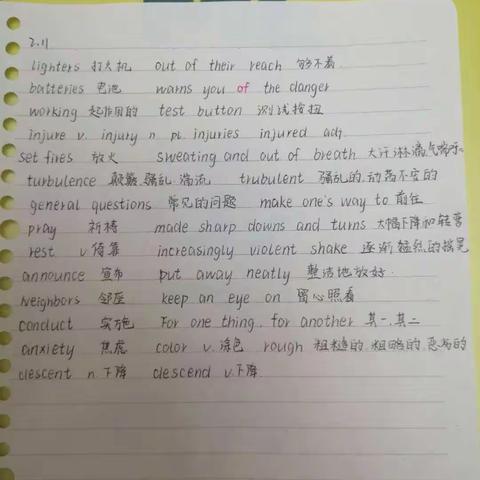 2.11
lighters 打火机 out of their reach 够不着.
batteries 电池 warns you of the danger
working 起作用的 test button 测试按扭
injure v. injury n pl. injuries injured adj.
set fires 放火 sweating and out of breath 大汗淋漓气喘吁吁
turbulence 颠簸.骚乱.湍流 trubulent 骚乱的.动荡不安的
general questions 常见的问题 make one's way to 前往
pray 祈祷 made sharp downs and turns 大幅下降和转弯
rest v 倚靠 increasingly violent shake 逐渐猛烈的摇晃
announce 宣布 put away neatly 整洁地放好.
Neighbors 邻座 keep an eye on 留心照看
conduct 实施 For one thing, for another 其一.其二
anxiety 焦虑 color v.涂色 rough 粗糙的.粗略的.
descent n.下降 descend v.下降